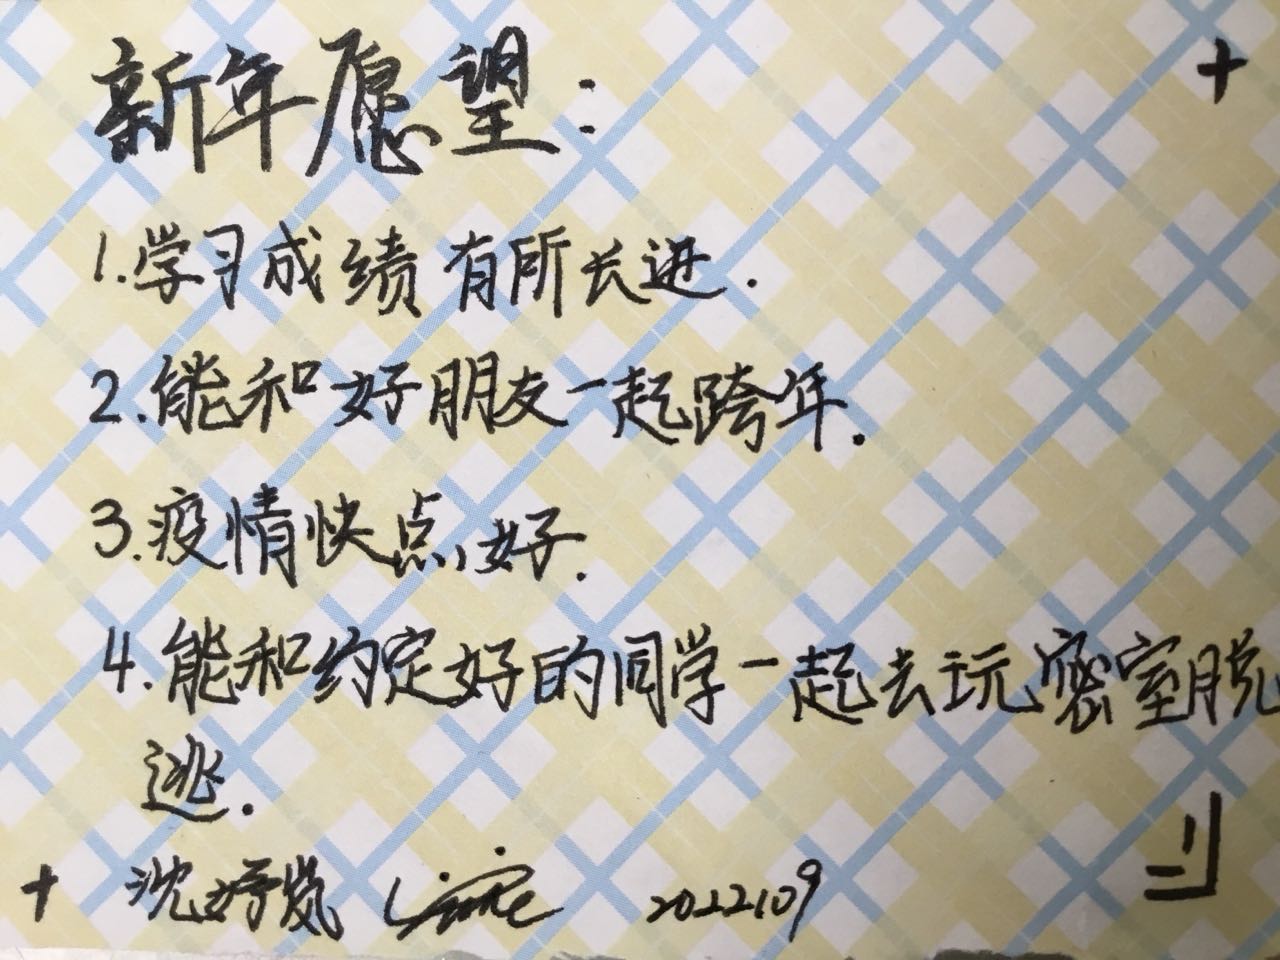 新年愿望:
1.学习成绩有所长进.
2.能和好朋友一起跨年.
3.疫情快点好.
4.能和约定好的同学一起去玩密室脱
逃.
沈妤岚 20221209